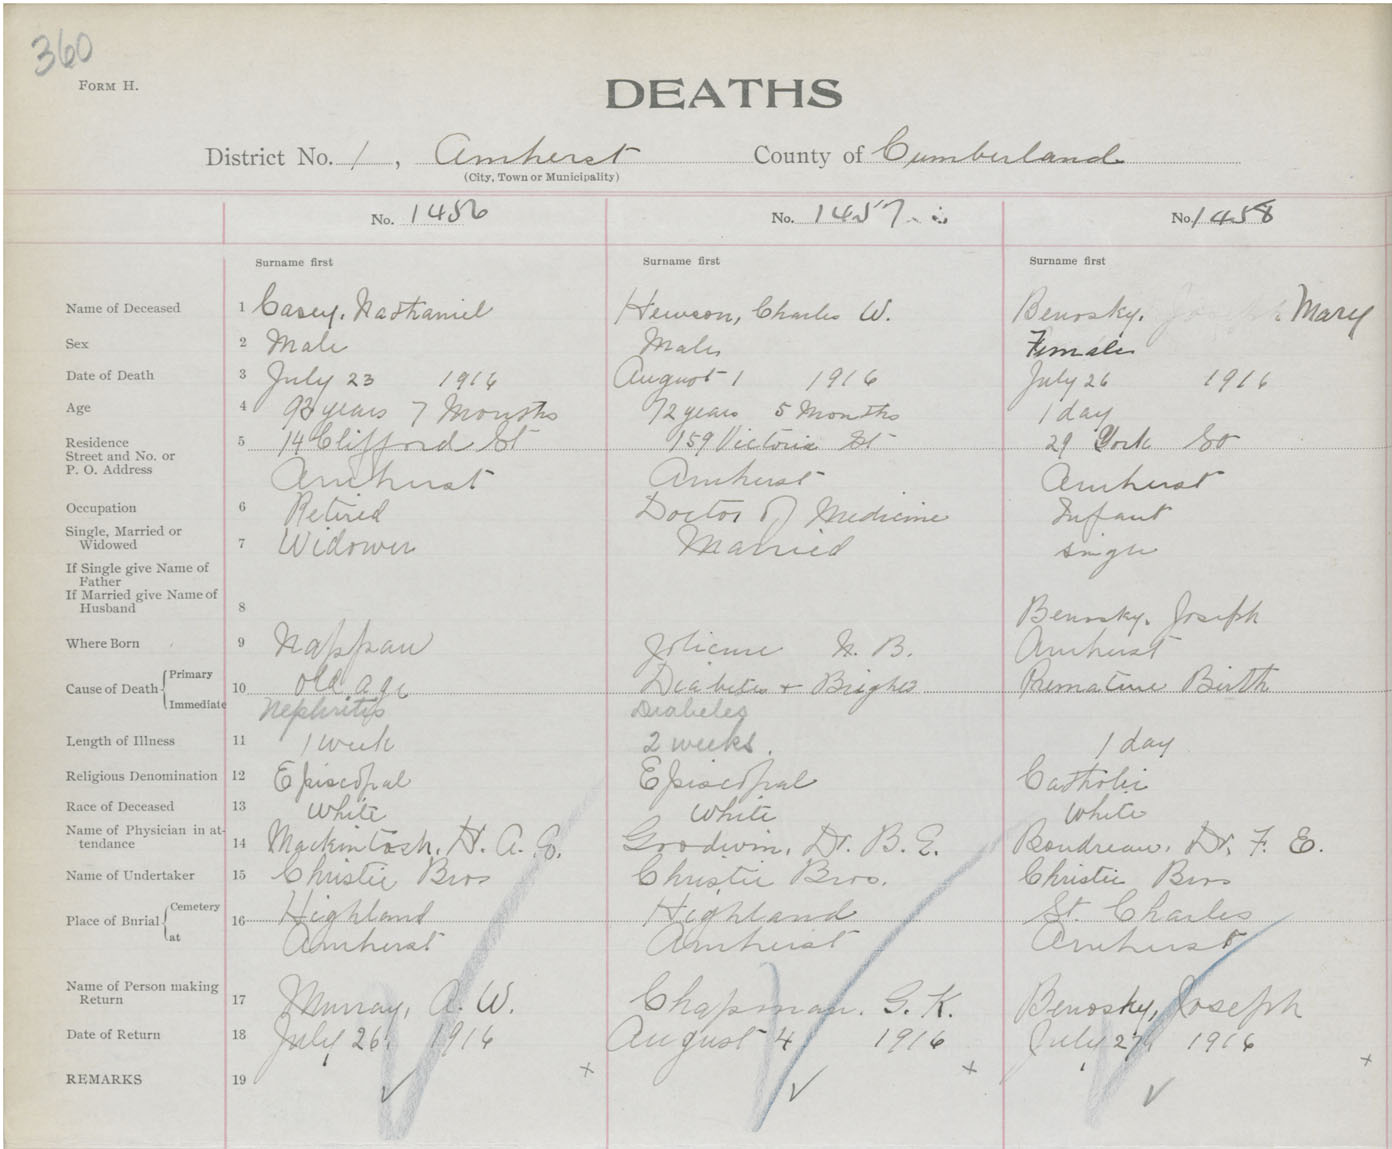 360
FORM H.
DEATHS
District No. 1, Amherst County of Cumberland
(City, Town or Municipality)
No. 1456 No. 1457 No. 1458
Surname first Surname first Surname first
Name of Deceased 1 Casey, Nathaniel Hewson, Charles W. Benosky, Joseph Mary
Sex 2 Male Male Female
Date of Death 3 July 23 1916 August 1 1916 July 26 1916
Age 4 93 years 7 Months 72 years 5 Months 1 day
Residence
Street and No. or
P. O. Address
5 14 Clifford St 159 Victoria St 29 York St
Amherst Amherst Amherst
Occupation 6 Retired Doctor of Medicine Infant
Single, Married or
Widowed 7 Widower Married Single
If Single give Name of
Father
If Married give Name of
Husband 8 Benosky, Joseph
Where Born 9 Nappan Jolicure N. B. Amherst
Cause of Death Primary 10 old age Diabetes + Brights Premature Birth
Immediate Nephritis Diabetes
Length of Illness 11 1 week 2 weeks. 1 day
Religious Denomination 12 Episcopal Episcopal Catholic
Race of Deceased 13 White White White
Name of Physician in at-
tendance 14 Mackintosh, H. A. G. Goodwin, Dr. B. E. Boudreau, Dr. F. E.
Name of Undertaker 15 Christie Bros Christie Bros. Christie Bros
Place of Burial Cemetery 16 Highland Highland St. Charles
at Amherst Amherst Amherst
Name of Person making
Return 17 Murray, A. W. Chapman, G. K. Benosky, Joseph
Date of Return 18 July 26, 1916 August 4 1916 July 27, 1916
REMARKS 19